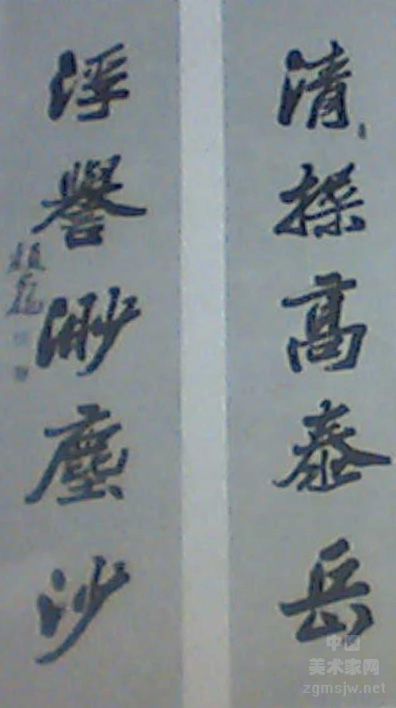 清操高泰岳
浮譽渺塵沙
中国
美术家网
zgmsjw.net